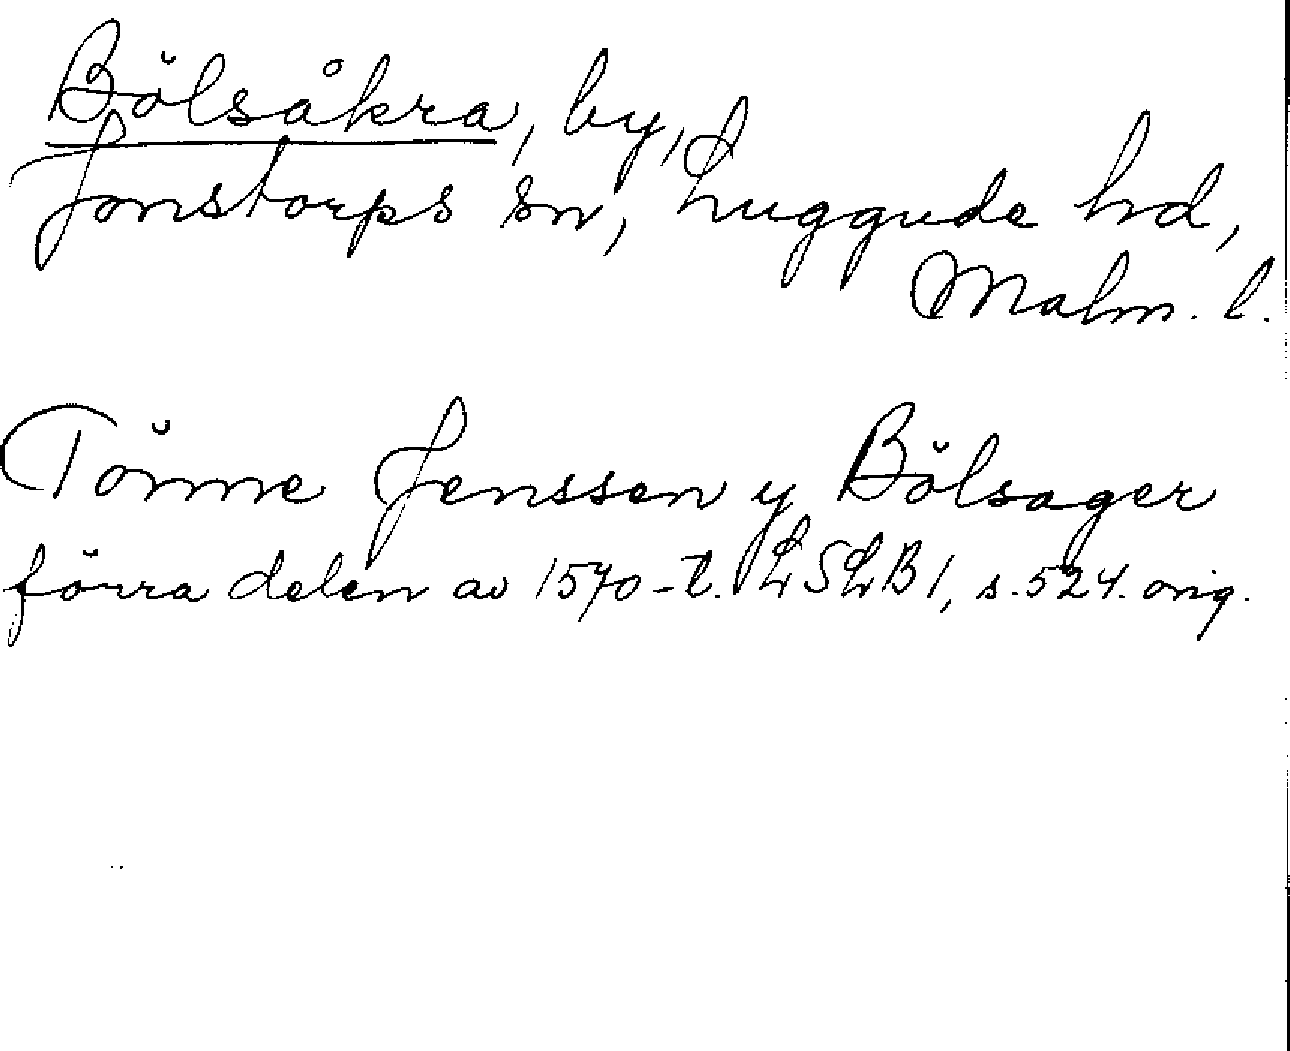 Bölsåkra, by,
Jonstorps sn, Luggude hd,
Malm. l.
Tönne Jenssen y Bölsager
förra delen av 1570-t. LSLB 1, s. 524. orig.